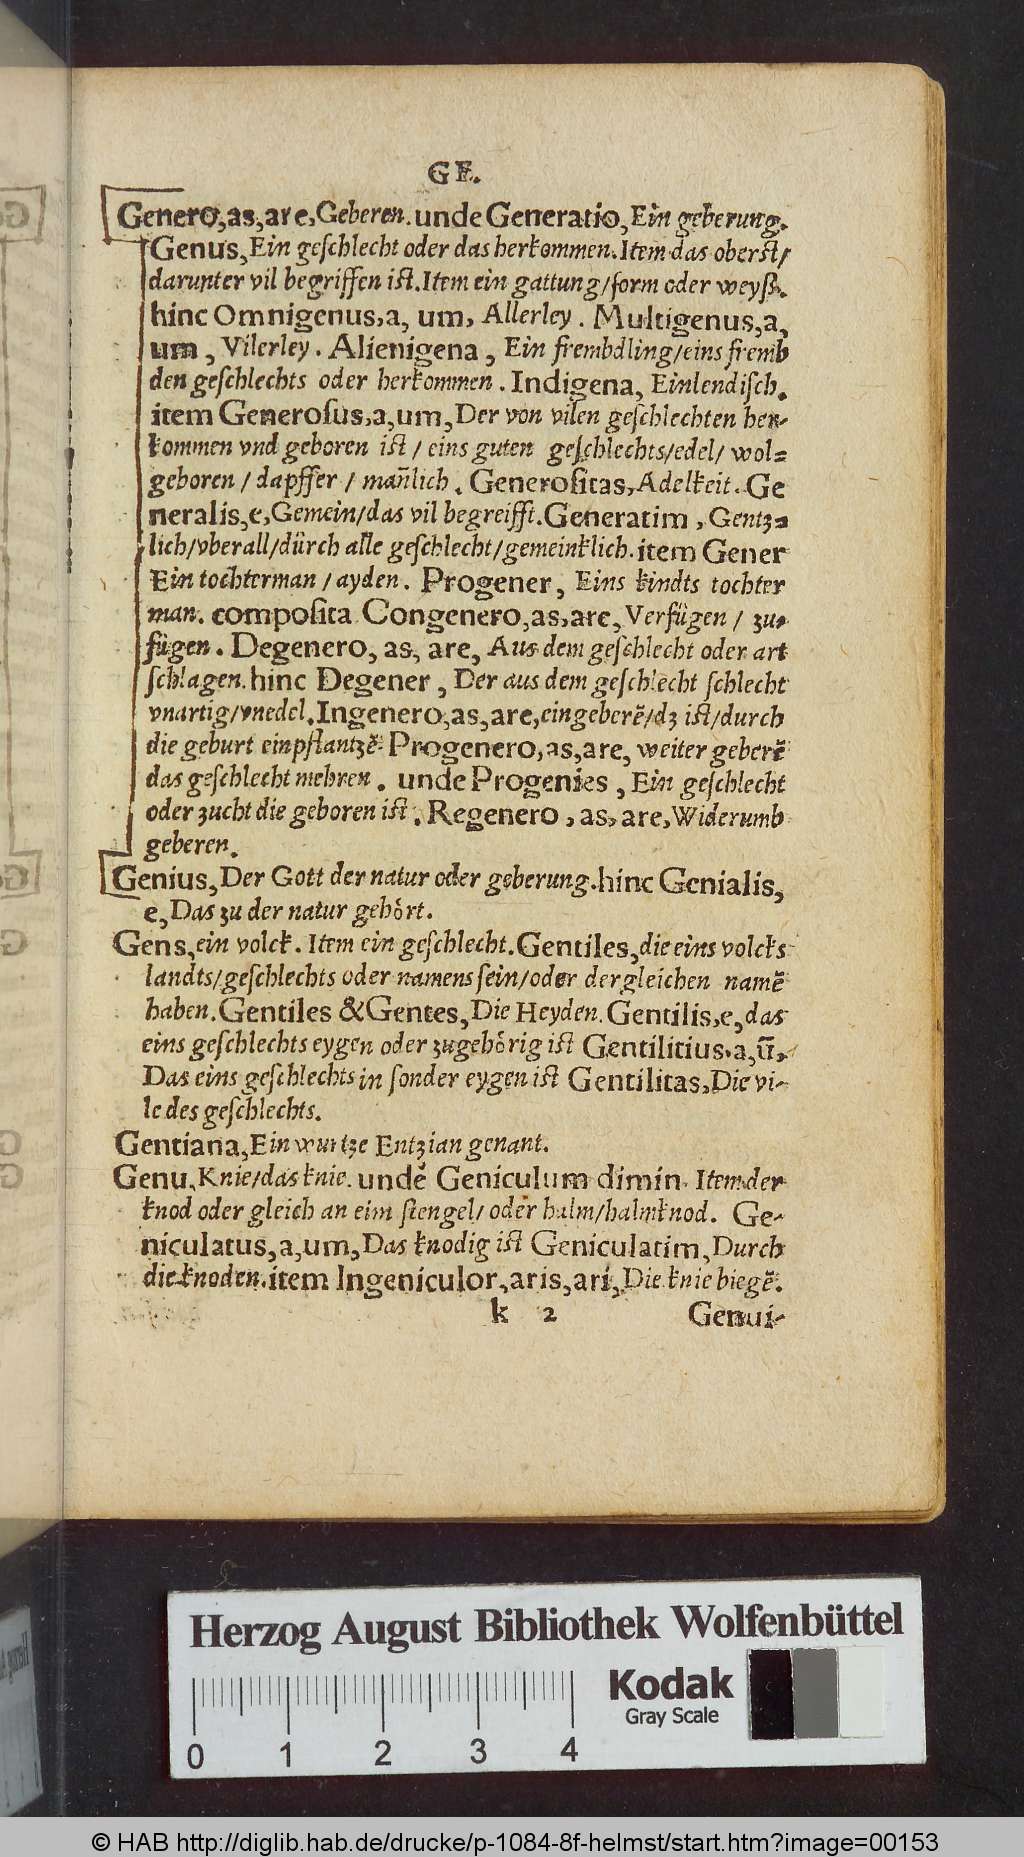 GE.
Genero,as,are,Geberen. unde Generatio,Ein geberung.
Genus,Ein geſchlecht oder das herkommen.Item das oberſt/
darunter vil begriffen iſt.Item ein gattung/form oder weyß.
hinc Omnigenus,a, um, Allerley. Multigenus,a,
um, Vilerley. Alienigena, Ein frembdling/eins fremb
den geſchlechts oder herkommen. Indigena, Einlendiſch.
item Generoſus,a,um,Der von vilen geſchlechten her-
kommen vnd geboren iſt / eins guten geſchlechts/edel/ wol-
geboren / dapffer / mañlich. Generoſitas,Adelkeit. Ge
neralis,e,Gemein/das vil begreifft.Generatim, Gentz-
lich/vberall/dürch alle geſchlecht/gemeinklich. item Gener
Ein tochterman / ayden. Progener, Eins kindts tochter
man. compoſita Congenero,as,are, Verfügen / zu-
fügen. Degenero, as, are, Aus dem geſchlecht oder art
ſchlagen. hinc Degener, Der aus dem geſchlecht ſchlecht
vnartig/vnedel.Ingenero,as,are,eingeberẽ/dz iſt/durch
die geburt einpflantzẽ. Progenero,as,are, weiter geberẽ
das geſchlecht mehren. unde Progenies, Ein geſchlecht
oder zucht die geboren iſt. Regenero, as, are,Widerumb
geberen.
Genius,Der Gott der natur oder geberung.hinc Genialis,
e,Das zu der natur gehoͤrt.
Gens,ein volck. Item ein geſchlecht.Gentiles,die eins volcks
landts/geſchlechts oder namens ſein/oder dergleichen namẽ
haben.Gentiles &Gentes,Die Heyden. Gentilis,e,das
eins geſchlechts eygen oder zugehoͤrig iſt Gentilitius,a,ũ,
Das eins geſchlechts in ſonder eygen iſt Gentilitas,Die vi-
le des geſchlechts.
Gentiana,Ein wurtze Entzian genant.
Genu,Knie/das knie. undẽ Geniculum dimin. Item der
knod oder gleich an eim ſtengel/ oder halm/halmknod. Ge-
niculatus,a,um,Das knodig iſt Geniculatim,Durch
die knoden.item Ingeniculor,aris,ari,Die knie biegẽ.
k 2 Genui-
Herzog August Bibliothek Wolfenbüttel
Kodak
Gray Scale
0 1 2 3 4
© HAB http://diglib.hab.de/drucke/p-1084-8f-helmst/start.htm?image=00153